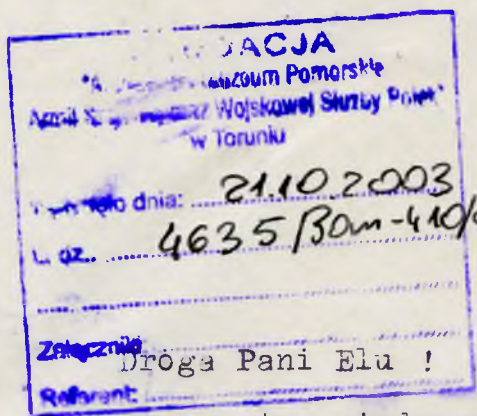 ACJA
Muzeum Pomorskie
Wojskowej Służby Polek"
w Toruniu
dnia: 21.10.2003
L. dz. 4635/Bam-410/
Załączniki
Droga Pani Elu !
Referent: